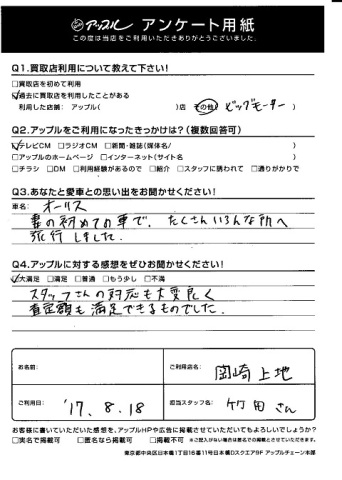 アップル アンケート用紙
この度は当店をご利用いただきありがとうございました。
Q1.買取店利用について教えて下さい!
□買取店を初めて利用
☑過去に買取店を利用したことがある
利用した店舗: アップル( )店 その他( ビッグモーター )
Q2.アップルをご利用になったきっかけは?(複数回答可)
☑テレビCM □ラジオCM □新聞・雑誌(媒体名/ )
□アップルのホームページ □インターネット(サイト名 )
□チラシ □DM □利用経験があるので □紹介 □スタッフに誘われて □通りがかりで
Q3.あなたと愛車との思い出をお聞かせください!
車名: オーリス
妻の初めての車で、たくさんいろんな所へ
旅行しました。
Q4.アップルに対する感想をぜひお聞かせください!
☑大満足 □満足 □普通 □もう少し □不満
スタッフさんの対応も大変良く
査定額も満足できるものでした。
お名前:
ご利用店名: 岡崎上地
ご利用日: '17.8.18
担当スタッフ名: 竹田さん
お客様に書いていただいた感想を、アップルHPや広告に掲載させていただいてもよろしいでしょうか?
□実名で掲載可 □匿名なら掲載可 □掲載不可 ※ご記入がない場合は匿名での掲載とさせていただきます。
東京都中央区日本橋1丁目16番11号日本橋Dスクエア9F アップルチェーン本部